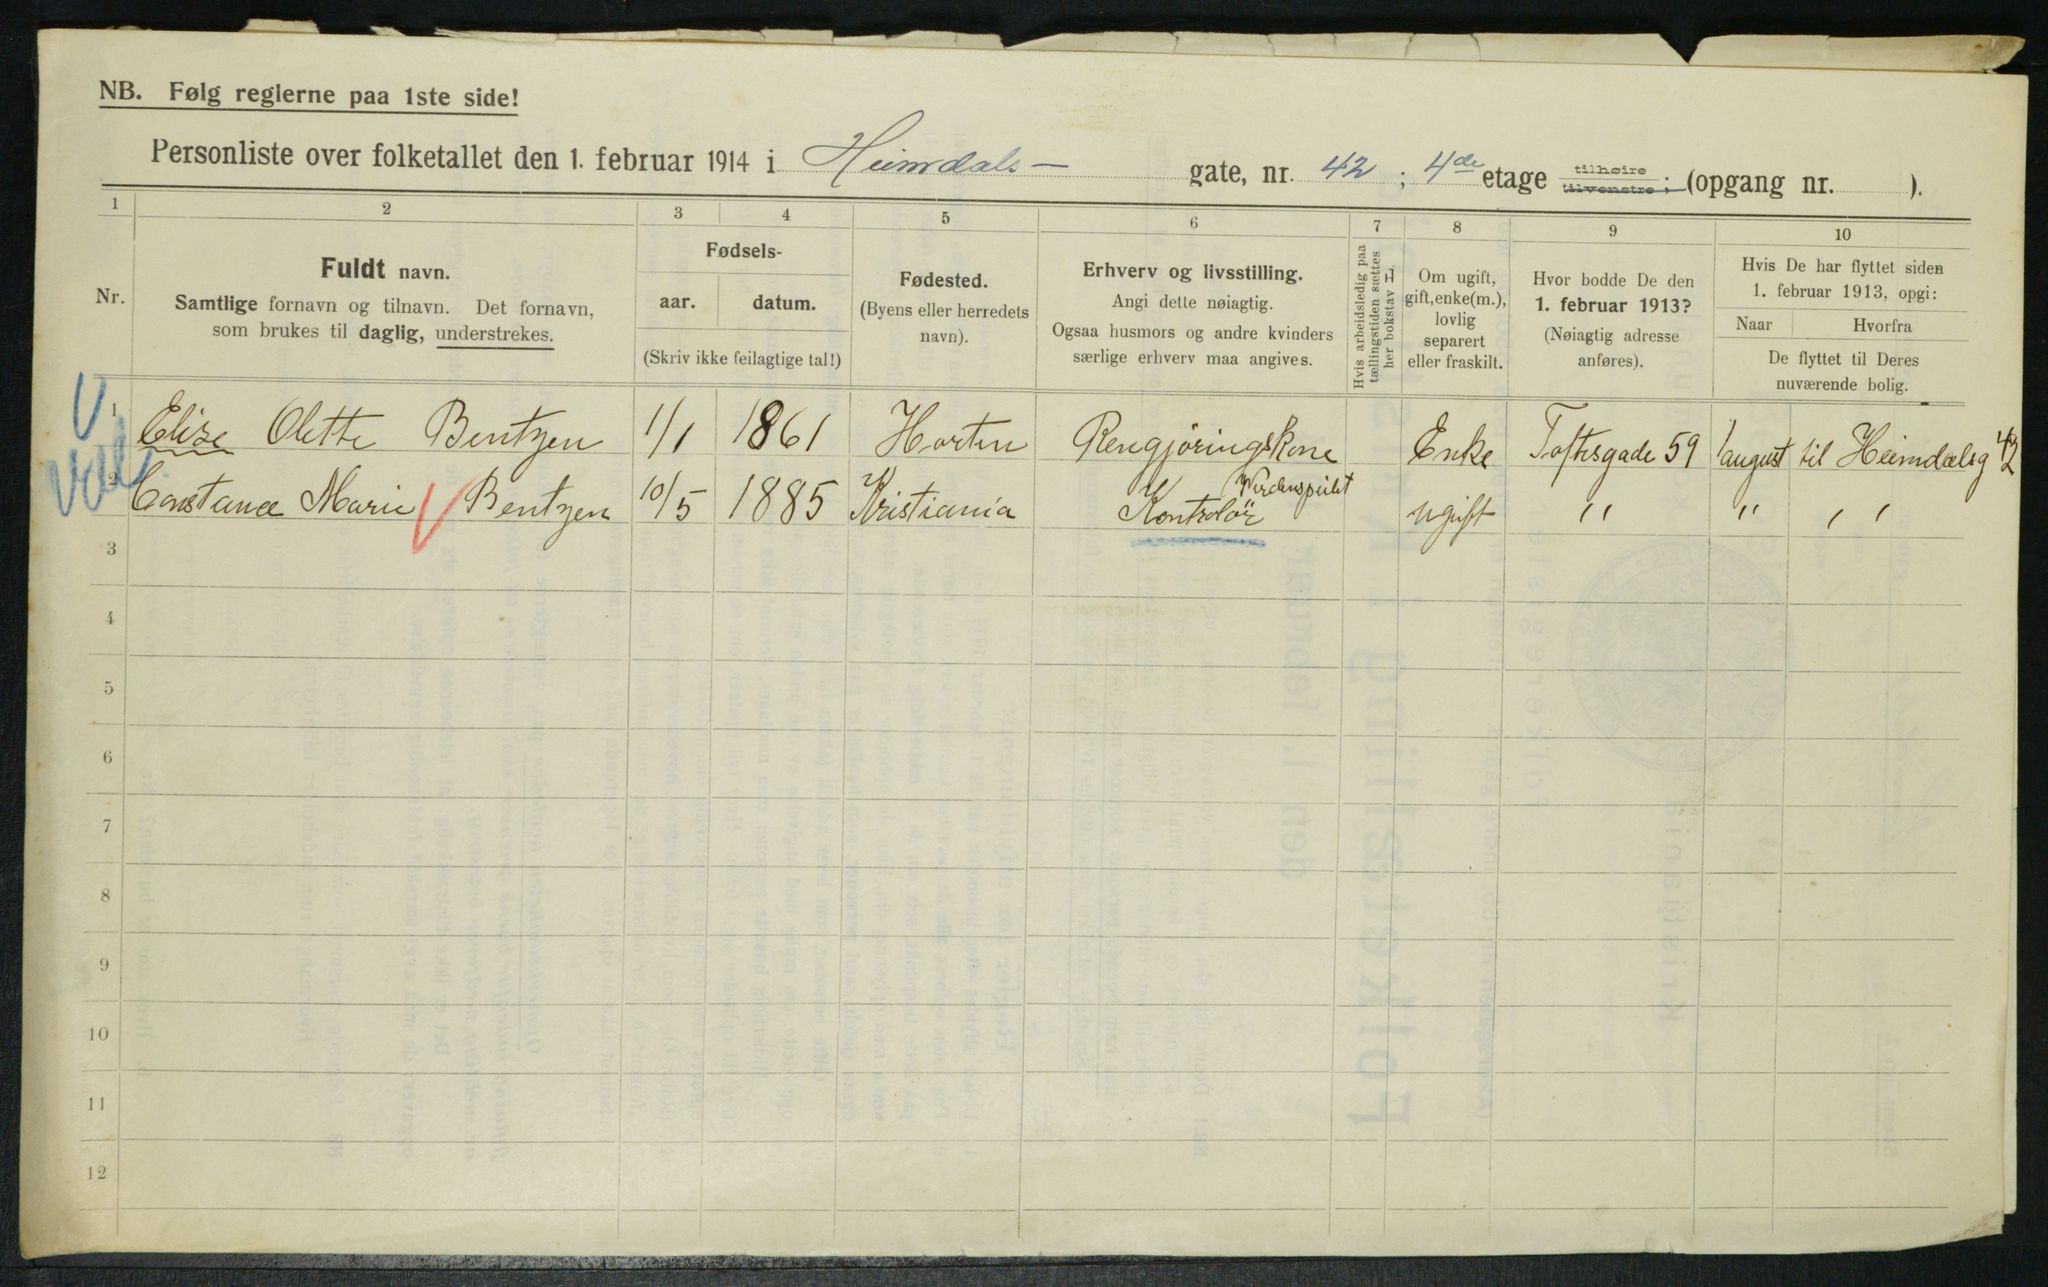 NB. Følg reglerne paa 1ste side!
Personliste over folketallet den 1. februar 1914 i Heimdals- gate, nr. 42 ; 4de etage tilhøire tilvenstre ; (opgang nr. ).
1 2 3 4 5 6 7 8 9 10
Nr.
Fuldt navn.
Samtlige fornavn og tilnavn. Det fornavn,
som brukes til daglig, understrekes.
Fødsels-
aar. datum.
(Skriv ikke feilagtige tal!)
Fødested.
(Byens eller herredets
navn).
Erhverv og livsstilling.
Angi dette nøiagtig.
Ogsaa husmors og andre kvinders
særlige erhverv maa angives.
Hvis arbeidsledig paa
tællingstiden sættes
her bokstav L.
Om ugift,
gift, enke(m.),
lovlig
separert
eller fraskilt.
Hvor bodde De den
1. februar 1913?
(Nøiagtig adresse
anføres).
Hvis De har flyttet siden
1. februar 1913, opgi:
Naar Hvorfra
De flyttet til Deres
nuværende bolig.
1 Elise Olette Bentzen 1/1 1861 Horten Rengjøringskone Enke Toftesgade 59 1 august til Heimdalsg 42
2 Constance Marie Bentzen 10/5 1885 Kristiania Kontrolör ugift " " "
3
4
5
6
7
8
9
10
11
12